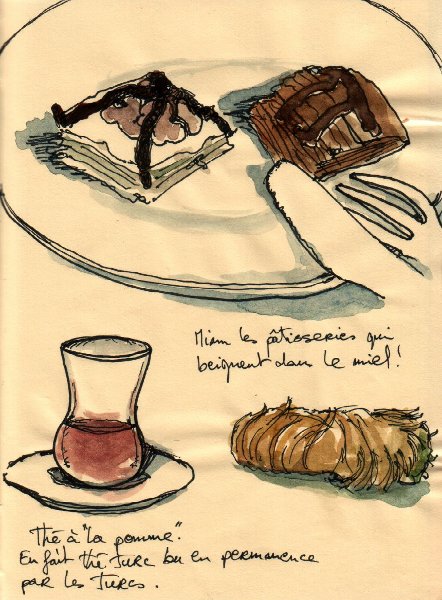 Miam les pâtisseries qui
baignent dans le miel !
Thé à "la pomme".
En fait thé turc bu en permanence
par les Turcs.